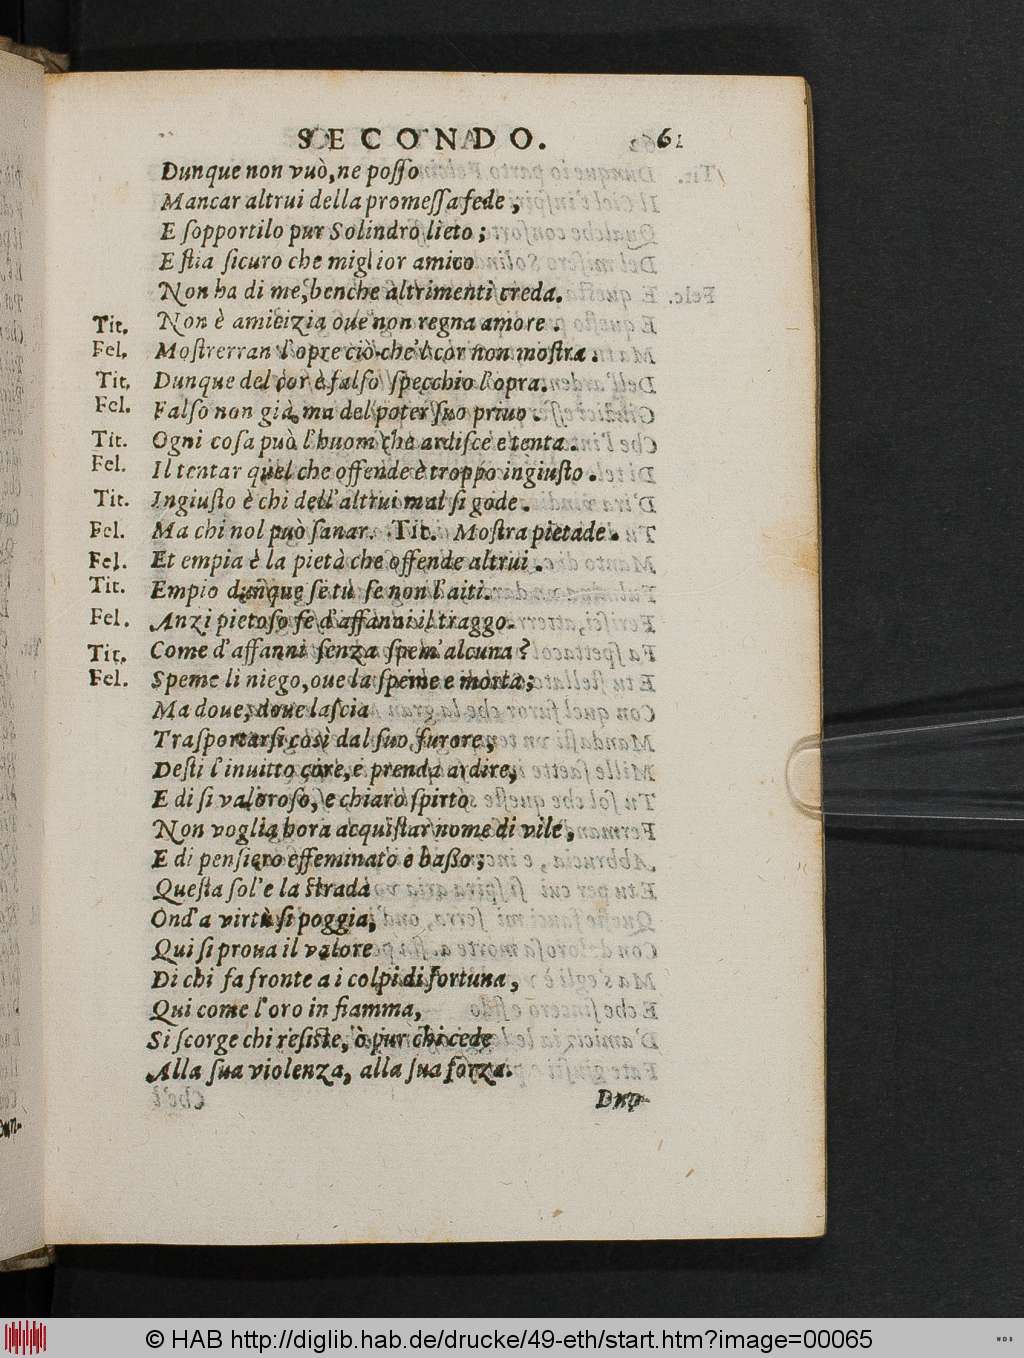 SECONDO. 61
Dunque non vuò, ne poſſo
Mancar altrui della promeſſa fede,
E ſopportilo pur Solindro lieto;
E ſtia ſicuro che miglior amico
Non ha di me, benche altrimenti creda.
Tit. Non è amicizia oue non regna amore.
Fel. Moſtrerran l'opre ciò che'l cor non moſtra.
Tit. Dunque del cor è falſo ſpecchio l'opra.
Fel. Falſo non già, ma del poter ſuo priuo.
Tit. Ogni coſa può l'huom che ardiſce e tenta.
Fel. Il tentar quel che offende è troppo ingiuſto.
Tit. Ingiuſto è chi dell'altrui mal ſi gode.
Fel. Ma chi nol può ſanar. Tit. Moſtra pietade.
Fel. Et empia è la pietà che offende altrui.
Tit. Empio dunque ſe tù ſe non l'aiti.
Fel. Anzi pietoſo ſe d'affanni il traggo.
Tit. Come d'affanni ſenza ſpem' alcuna?
Fel. Speme li niego, oue la ſpeme e morta;
Ma doue, doue laſcia
Traſportarſi così dal ſuo furore,
Deſti l'inuitto core, e prenda ardire,
E di ſi valoroſo, e chiaro ſpirto
Non voglia hora acquiſtar nome di vile,
E di penſiero effeminato e baßo;
Queſta ſol'e la ſtrada
Ond'a virtù ſi poggia,
Qui ſi proua il valore
Di chi fa fronte a i colpi di fortuna,
Qui come l'oro in fiamma,
Si ſcorge chi reſiſte, ò pur chi cede
Alla ſua violenza, alla ſua forza.
Dun-
© HAB http://diglib.hab.de/drucke/49-eth/start.htm?image=00065